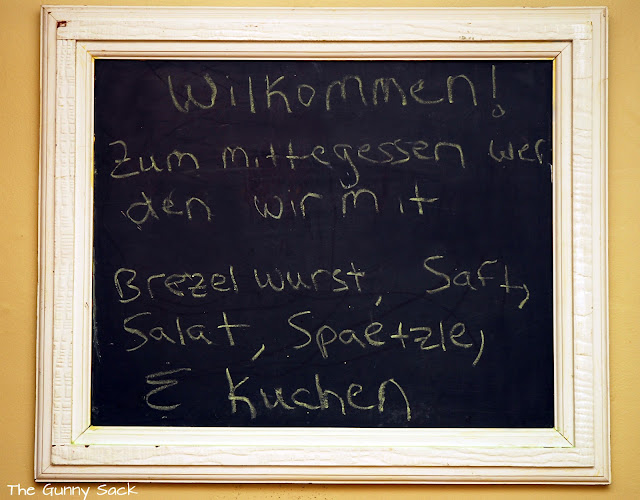 Wilkommen!
Zum mittegessen wer
den wir mit
Brezel wurst, Saft,
Salat, Spaetzle,
& Kuchen
The Gunny Sack